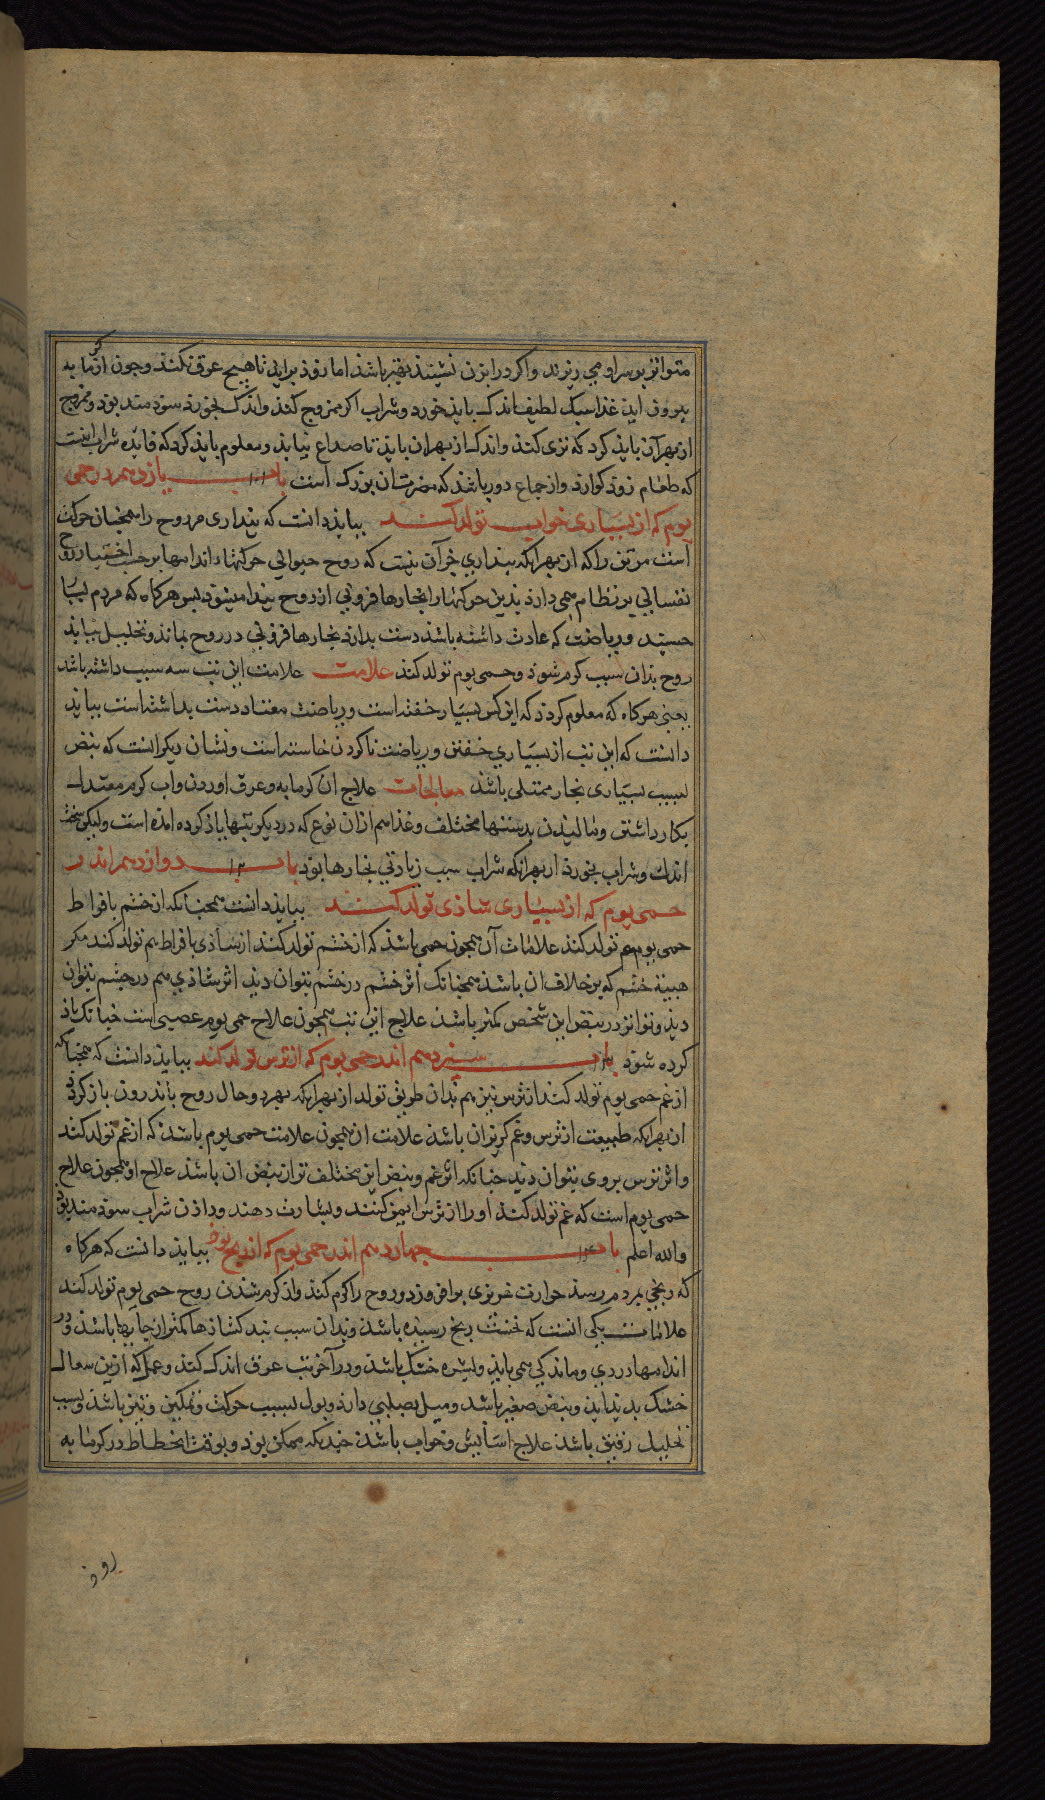 متواتر بر سر او می ریزند واکر در ابزن نشیند بهتر باشد اما زوذ براید تا هیچ عرق نکند وجون از کرمابه
بیرون اید غذا سبک لطیف اندک باید خورد وشراب اکر ممزوج کند واندک بخورد سوذمند بوذ وممزوج
از بهر آن باید کرد که تری کند واندک از بهر ان باید تا صداع نیاید ومعلوم باید کرد که فایده شراب اینست
که طعام زوذ کوارد واز جماع دور باشد که مضرت ان بزرک است باب یازدهم در حمی
یوم که از بسیاری خواب تولد کند بباید دانست که بیداری مر روح را همچنان حرکت
است مر تن را که از بهر انکه بیداری جز آن نیست که روح حیوانی حرکتها اندامها بر حسب اختیار روح
نفسانی بر نظام همی دارد بدین حرکتها بخارها فزونی از روح بیذا میشوذ بس هرکاه که مردم بسیار
خسبند وریاضت که عادت داشته باشد دست بدارد بخارها فزونی در روح بماند وتحلیل نیابد
روح بدان سبب کرم شوذ وحمی یوم تولد کند علامت علامت این تب سه سبب داشته باشد
یعنی هرکاه که معلوم کردد که این کس بسیار خفته است وریاضت معتاد دست بداشته است بباید
دانست که این تب از بسیاری خفتن وریاضت ناکردن خاسته است ونشان دیکر انست که نبض
بسبب بسیاری بخار ممتلی باشد معالجات علاج ان کرمابه وعرق اوردن واب کرم معتدل
بکار داشتن ومالیدن بدستها مختلف وغذا هم ازان نوع که در دیکر تبها یاذ کرده امذه است ولیکن سخت
اندک وشراب نخورد از بهر انکه شراب سبب زیادتی بخارها بوذ باب دوازدهم اندر
حمی یوم که از بسیاری شاذی تولد کند بباید دانست همجنانکه از خشم بافراط
حمی یوم تولد کند علامات آن همجون حمی باشد که از خشم تولد کند از شاذی بافراط هم تولد کند مکر
هیئة خشم که بر خلاف ان باشد همجنانک اثر خشم در خشم بتوان دید اثر شاذی هم در جشم بتوان
دید وتواتر در نبض این شخص کمتر باشد علاج این تب همجون علاج حمی یوم عصبی است جنانک یاذ
کرده شوذ باب سیزدهم اندر حمی یوم که از ترس تولد کند بباید دانست که همجنانکه
از غم حمی یوم تولد کند از ترس نیز هم بدان طریق تولد از بهر انکه بهر دو حال روح باندرون باز کردد
از بهر انکه طبیعت از ترس وغم کریزان باشد علامت ان همجون علامت حمی یوم باشد که از غم تولد کند
واثر ترس بر وی بتوان دید جنانکه اثر غم ونبض این مختلف تر از نبض ان باشد علاج او همجون علاج
حمی یوم است که غم تولد کند او را از ترس ایمن کنند وبشارت دهند وداذن شراب سوذمند بوذ
والله اعلم باب جهاردهم اندر حمی یوم که از رنج بوذ بباید دانست که هرکاه
که رنجی بمردم رسد حرارت غریزی برافروزد وروح را کرم کند واز کرم شدن روح حمی یوم تولد کند
علامات یکی انست که نخست رنج رسیده باشد وبدان سبب بندکشاذها کمتر از جایها باشد ودر
اندامها دردی وماندکی همی یابد وبشره خشک باشد ودر آخر تب عرق اندک کند وعمل که ازین سعال
خشک بدید اید ونبض صغیر باشد ومیل بصلبی دارد وبول بسبب حرکت ونمکین وتیز باشد وبسبب
تحلیل رقیق باشد علاج اسایش وخواب باشد جندانکه ممکن بوذ وبوقت انحطاط در کرمابه
روذ